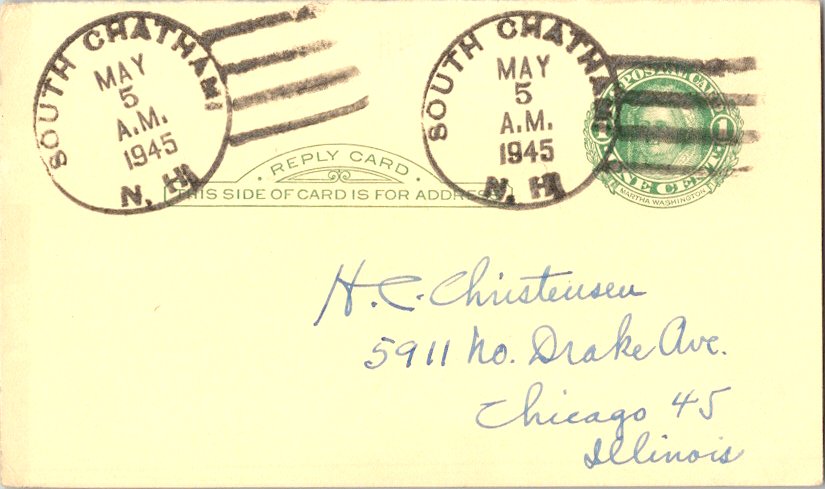 SOUTH CHATHAM
MAY
5
A.M.
1945
N. H.
SOUTH CHATHAM
MAY
5
A.M.
1945
N. H.
POSTAL CARD
1 1
ONE CENT
MARTHA WASHINGTON
· REPLY CARD ·
THIS SIDE OF CARD IS FOR ADDRESS
H. C. Christensen
5911 No. Drake Ave.
Chicago 45
Illinois